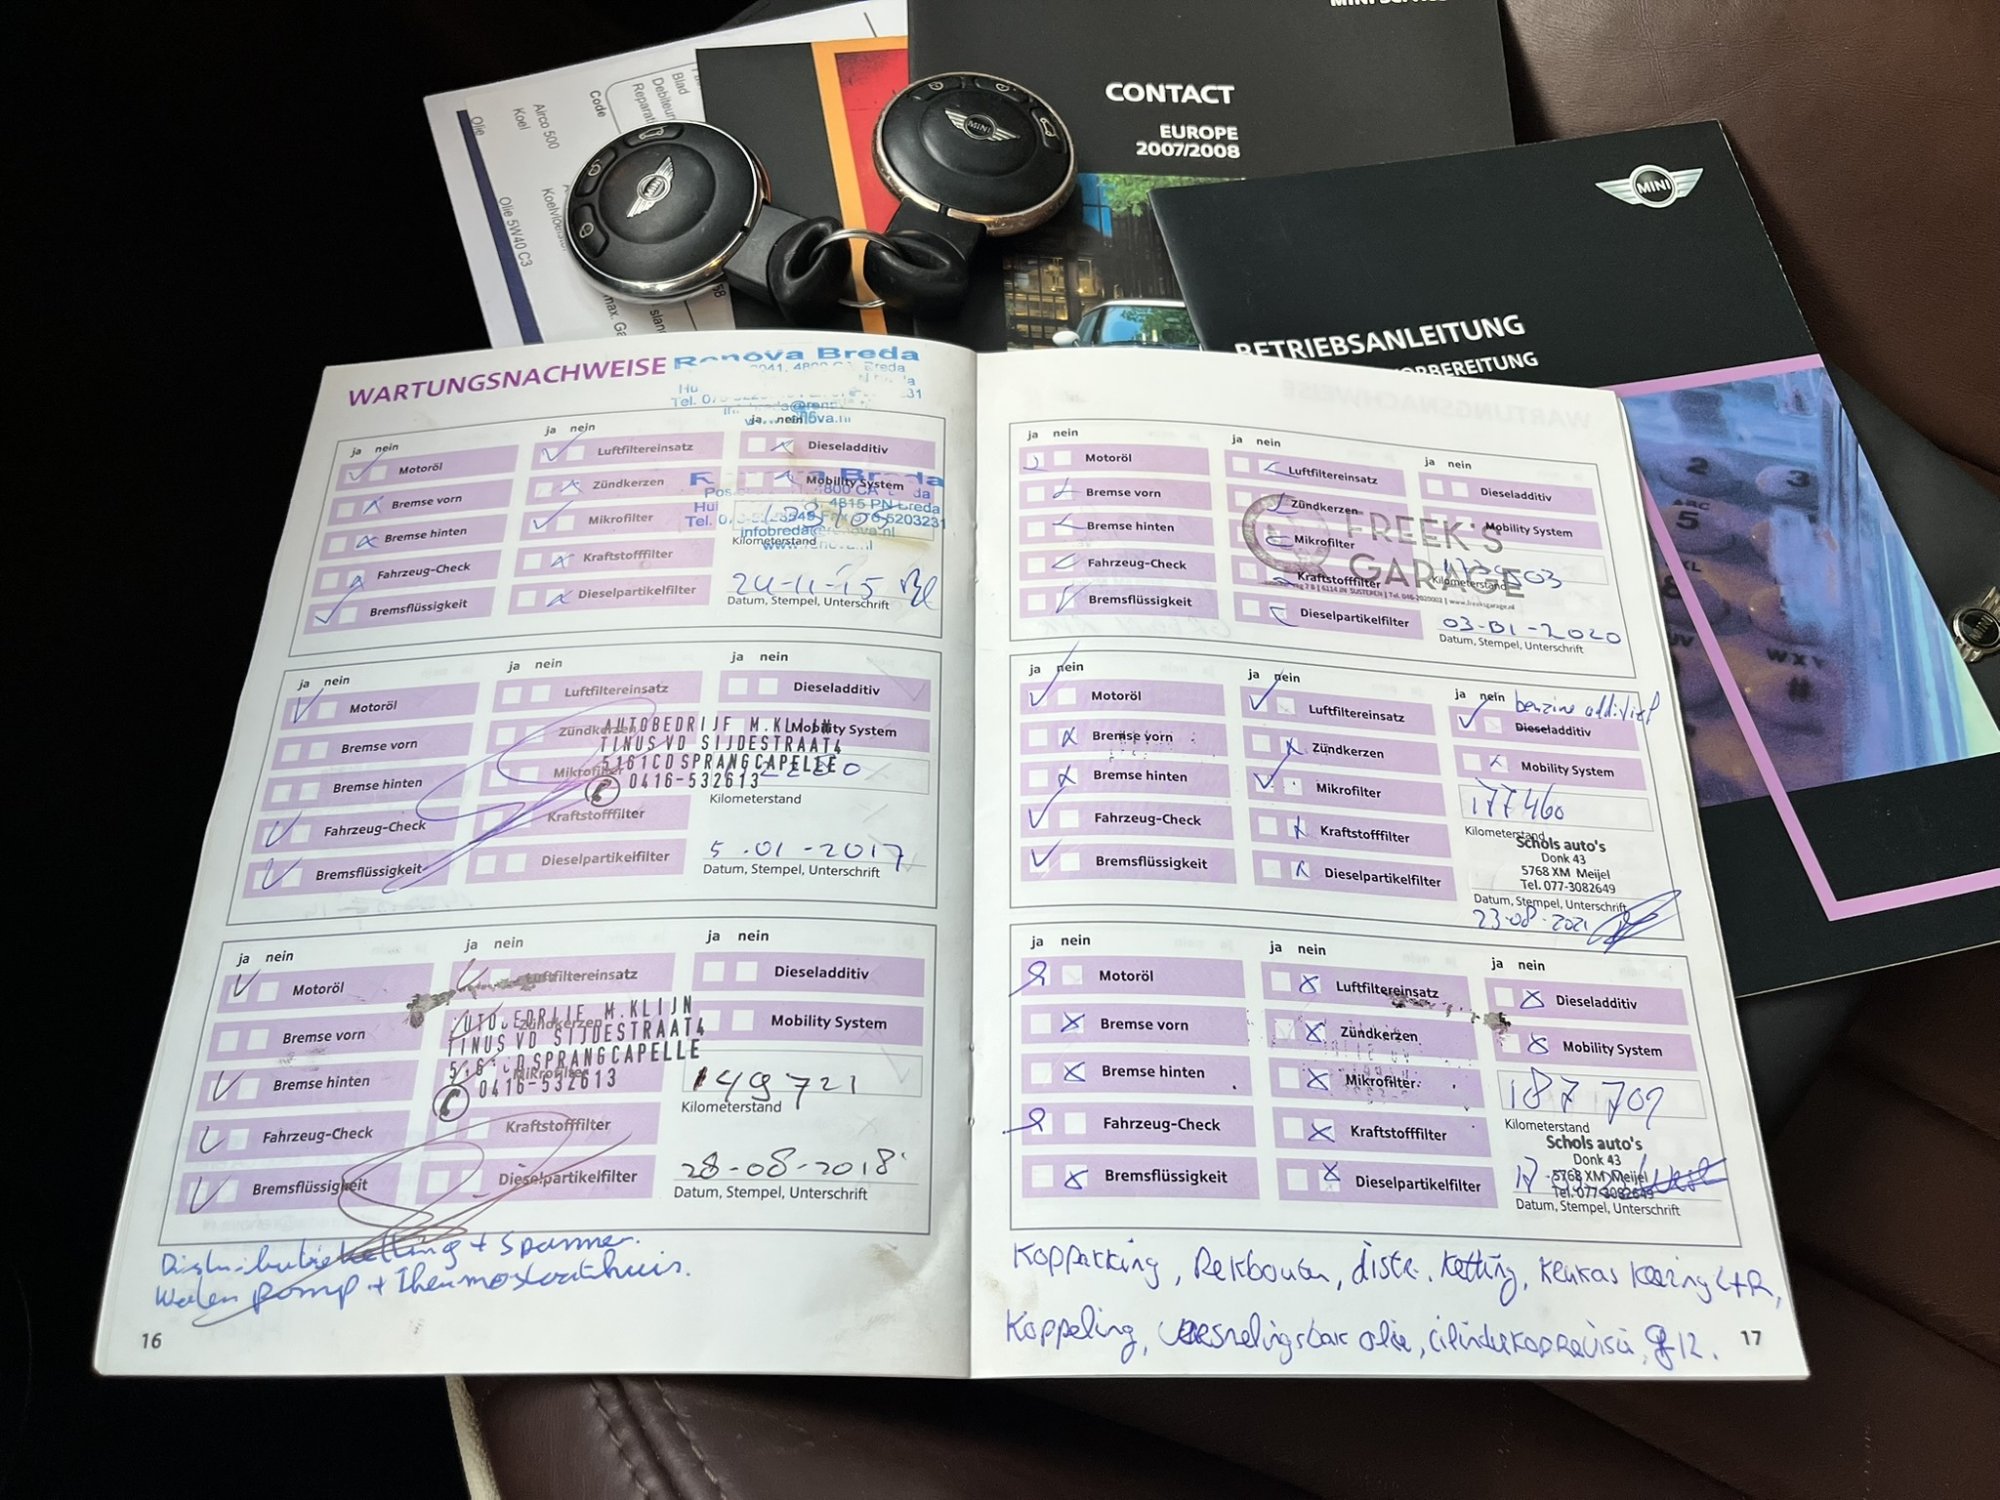 MINI SERVICE
CONTACT
EUROPE
2007/2008
MINI
MINI
MINI
BETRIEBSANLEITUNG
Blad
Code
Airco 500
Koel
Olie
Olie 5W40 C3
max. Ga
slang
WARTUNGSNACHWEISE
Renova Breda
ja nein
Motoröl
Bremse vorn
Bremse hinten
Fahrzeug-Check
Bremsflüssigkeit
ja nein
Luftfiltereinsatz
Zündkerzen
Mikrofilter
Kraftstofffilter
Dieselpartikelfilter
ja nein
Dieseladditiv
Mobility System
4815 PN Breda
infobreda@renova.nl
Kilometerstand
24-11-15
Datum, Stempel, Unterschrift
ja nein
Motoröl
Bremse vorn
Bremse hinten
Fahrzeug-Check
Bremsflüssigkeit
ja nein
Luftfiltereinsatz
Zündkerzen
Mikrofilter
Kraftstofffilter
Dieselpartikelfilter
ja nein
Dieseladditiv
Mobility System
AUTOBEDRIJF M. KLIJN
TINUS VD SIJDESTRAAT 4
5161CD SPRANGCAPELLE
0416-532613
Kilometerstand
5-01-2017
Datum, Stempel, Unterschrift
ja nein
Motoröl
Bremse vorn
Bremse hinten
Fahrzeug-Check
Bremsflüssigkeit
ja nein
Luftfiltereinsatz
Zündkerzen
Mikrofilter
Kraftstofffilter
Dieselpartikelfilter
ja nein
Dieseladditiv
Mobility System
M. KLIJN
TINUS VD SIJDESTRAAT 4
SPRANGCAPELLE
0416-532613
149721
Kilometerstand
28-08-2018
Datum, Stempel, Unterschrift
Distributieketting + Spanner.
Water pomp + Thermostaathuis.
16
ja nein
Motoröl
Bremse vorn
Bremse hinten
Fahrzeug-Check
Bremsflüssigkeit
ja nein
Luftfiltereinsatz
Zündkerzen
Mikrofilter
Kraftstofffilter
Dieselpartikelfilter
ja nein
Dieseladditiv
Mobility System
FREEK'S
GARAGE
Kilometerstand
03-01-2020
Datum, Stempel, Unterschrift
ja nein
Motoröl
Bremse vorn
Bremse hinten
Fahrzeug-Check
Bremsflüssigkeit
ja nein
Luftfiltereinsatz
Zündkerzen
Mikrofilter
Kraftstofffilter
Dieselpartikelfilter
ja nein
benzine additief
Dieseladditiv
Mobility System
177460
Kilometerstand
Schols auto's
Donk 43
5768 XM Meijel
Tel. 077-3082649
Datum, Stempel, Unterschrift
23-08-2021
ja nein
Motoröl
Bremse vorn
Bremse hinten
Fahrzeug-Check
Bremsflüssigkeit
ja nein
Luftfiltereinsatz
Zündkerzen
Mikrofilter
Kraftstofffilter
Dieselpartikelfilter
ja nein
Dieseladditiv
Mobility System
187 709
Kilometerstand
Schols auto's
Donk 43
5768 XM Meijel
Tel. 077-3082649
Datum, Stempel, Unterschrift
Koppakking, Rekbouten, distr. ketting, Krukas keering L+R,
Koppeling, versnelingsbak olie, cilinderkoprevisie,
17
2
3
ABC
5
WXY